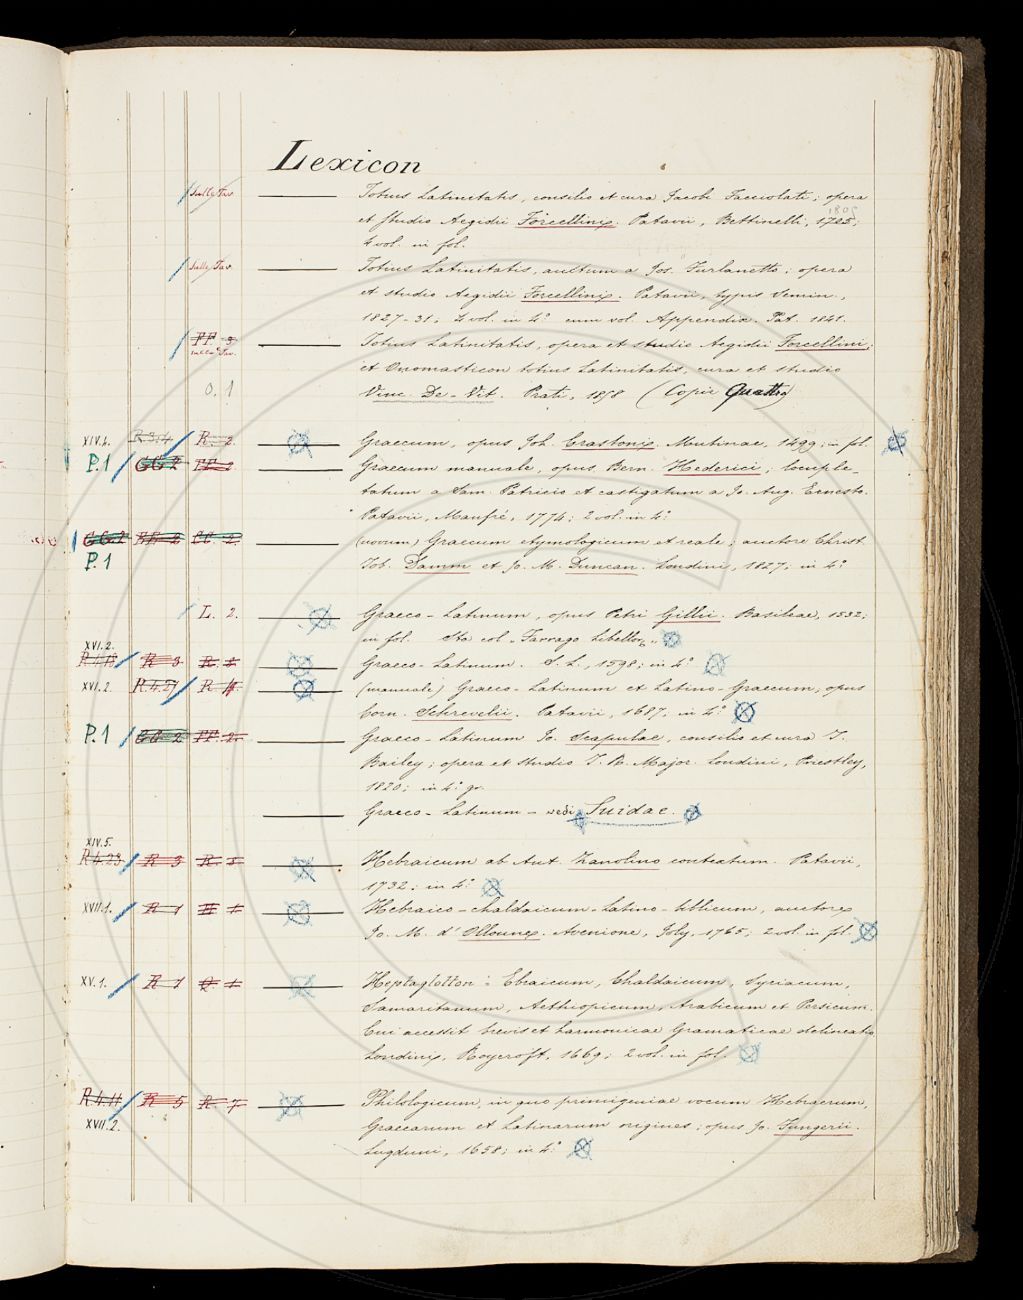 Lexicon
Sulle Tav. Totius Latinitatis, consilio et cura Jacobi Facciolati; opera
et studio Aegidii Forcellini. Patavii, Bettinelli, 1805;
4 vol. in fol.
Sulle Tav. Totius Latinitatis, auctum a Jos. Furlanetto; opera
et studio Aegidii Forcellini. Patavii, typis Semin.,
1827-31; 4 vol. in 4.° cum vol. Appendix. Pat. 1841.
FF 3 Totius Latinitatis, opera et studio Aegidii Forcellini;
et Onomasticon totius Latinitatis, cura et studio
0.1 Vinc. De-Vit. Prati, 1858 (Copie Quattro)
XIV.4. R. 2. Graecum, opus Joh. Crastoni. Mutinae, 1499; in fol.
P.1 GG 2 FF 2 Graecum manuale, opus Bern. Hederici; locuple-
tatum a Sam. Patricio et castigatum a Jo. Aug. Ernesto.
Patavii, Manfrè, 1774; 2 vol. in 4.°
GG.2 CC. 2. (novum) Graecum etymologicum et reale; auctore Christ.
P.1 Tob. Damm et Jo. M. Duncan. Londini, 1827; in 4.°
L. 2. Graeco-Latinum, opus Petri Gillii. Basileae, 1532;
in fol. Sta col "Farrago libellor."
XVI.2.
R 3 Graeco-Latinum. S. L., 1598; in 4.°
XVI.2. R.4.21 R 4. (manuale) Graeco-Latinum et Latino-Graecum, opus
Corn. Schrevelii. Patavii, 1687; in 4.°
P.1 GG 2 FF. 2. Graeco-Latinum Jo. Scapulae, consilio et cura J.
Bailey; opera et studio J. R. Major. Londini, Priestley,
1820; in 4.° gr.
Graeco-Latinum - vedi Suidae.
XIV.5.
R 4.23 R 3 Hebraicum ab Ant. Zanolino contextum. Patavii,
1732; in 4.°
XVII.1. R 1 Hebraico-chaldaicum-Latino-biblicum, auctore
Jo. M. d'Olloune. Avenione, Joly, 1765; 2 vol. in fol.
XV.1. R 1 Q 1 Heptaglotton: Ebraicum, Chaldaicum, Syriacum,
Samaritanum, Aethiopicum, Arabicum et Persicum.
Cui accessit brevis et harmonicae Gramaticae delineatio
Londini, Roycroft, 1669; 2 vol. in fol.
R.4.11 R 5 R 7 Philologicum, in quo primigeniae vocum Hebraerum,
XVII.2. Graecarum et Latinarum origines; opus Jo. Jungerii.
Lugduni, 1658; in 4.°